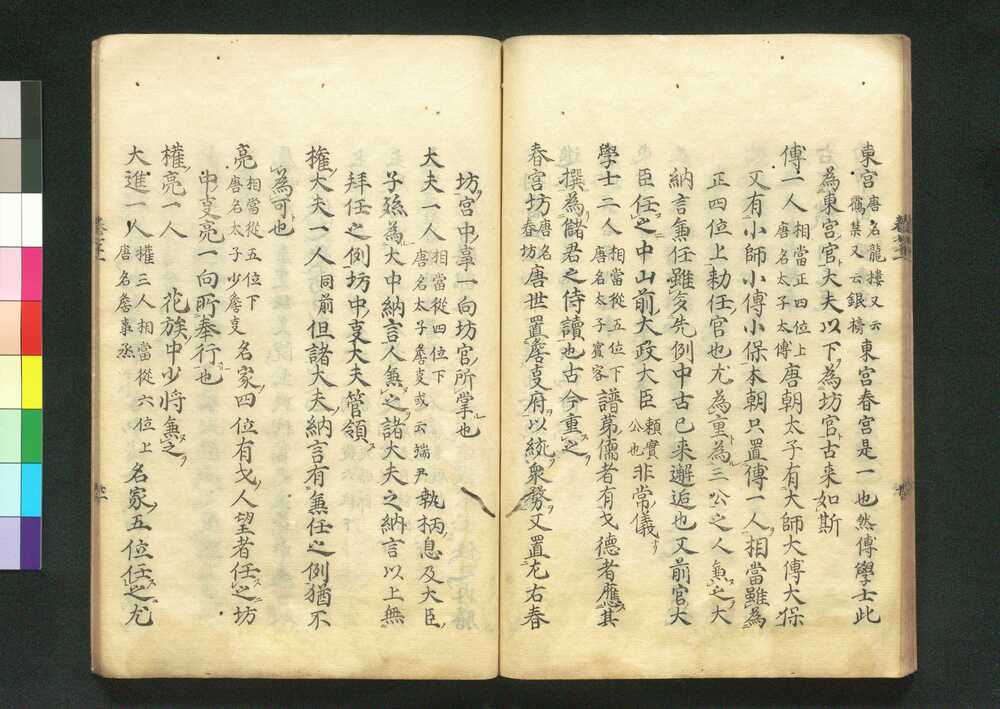 東宮唐名龍樓又云
鶴禁又云銀牓東宮春宮是一也然傅學士此
為東宮官大夫以下為坊官古来如斯
傅一人相當正四位上
唐名太子太傅唐朝太子有大師大傅大保
又有小師小傅小保本朝只置傅一人相當雖為
正四位上勅任官也尤為重為三公之人兼之大
納言兼任雖多先例中古已来邂逅也又前官大
臣任之中山前大政大臣頼實
公也非常儀
學士二人相當從五位下
唐名太子賓客譜苐儒者有才德者應其
撰為儲君之侍讀也古今重之
春宮坊唐名
春坊唐世置詹事府以統衆務又置左右春
坊宮中事一向坊官所掌也
大夫一人相當從四位下
唐名太子詹事或云端尹執柄息及大臣
子孫為大中納言人兼之諸大夫之納言以上無
拜任之例坊中事大夫管領
權大夫一人同前但諸大夫納言有兼任之例猶不
為可也
亮相當從五位下
唐名太子少詹事名家四位有才人望者任之坊
中事亮一向所奉行也
權亮一人 花族中少將兼之
大進一人權三人相當從六位上
唐名詹事丞名家五位任之尤